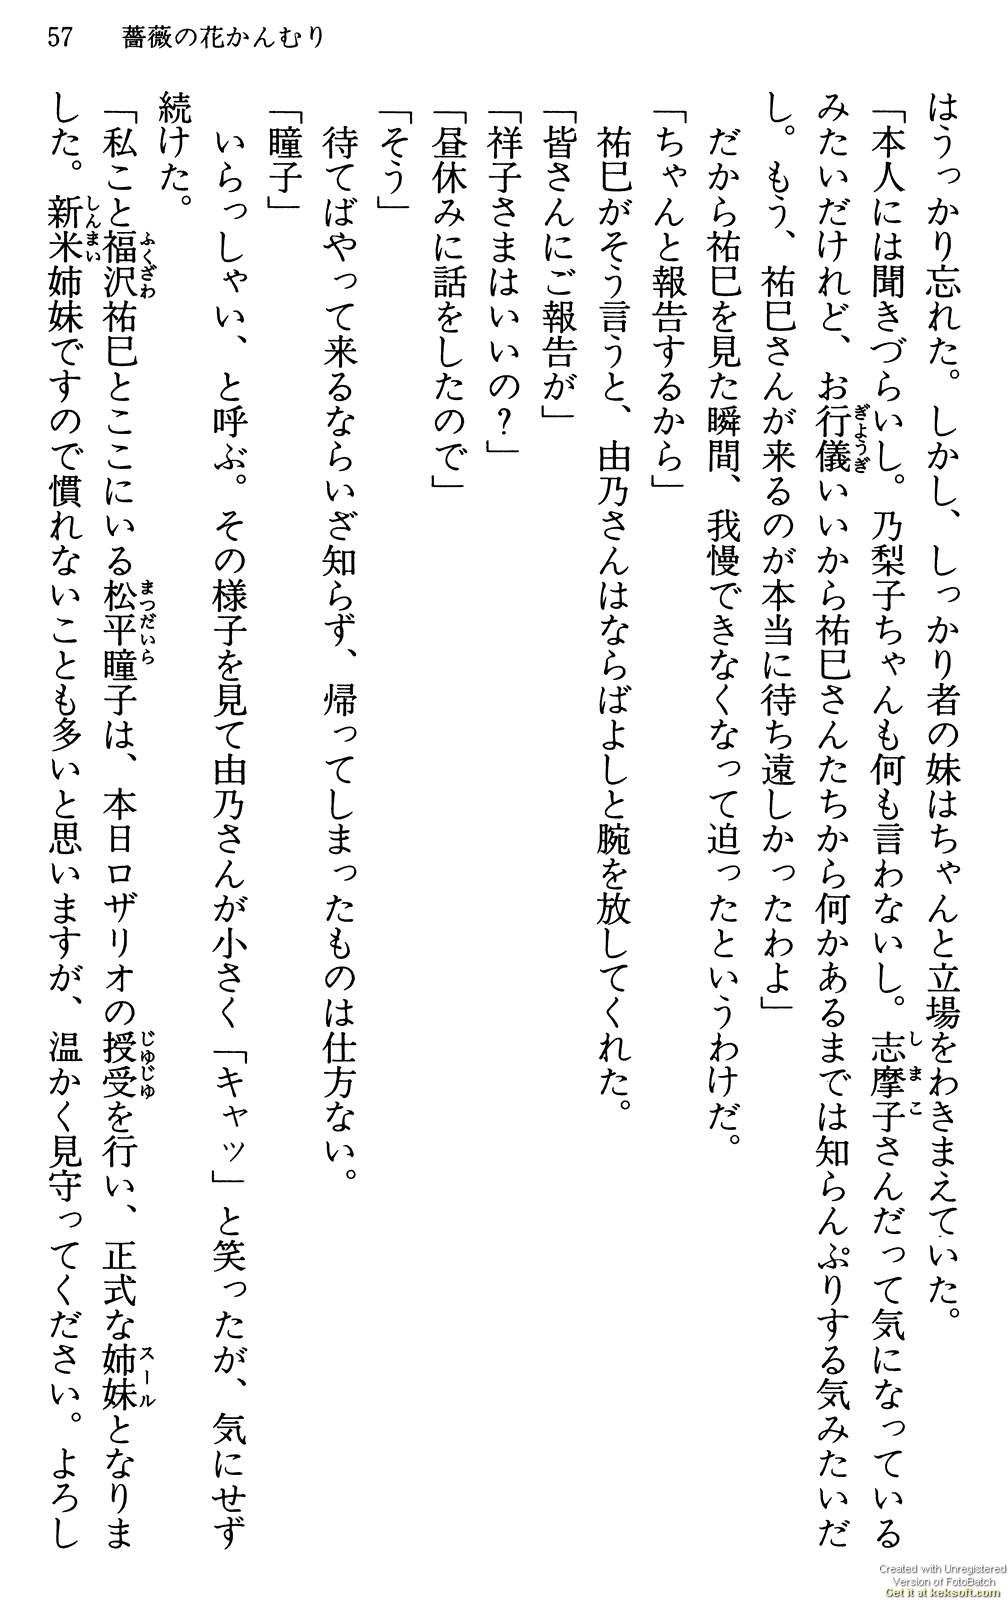 57　薔薇の花かんむり
はうっかり忘れた。しかし、しっかり者の妹はちゃんと立場をわきまえていた。
「本人には聞きづらいし。乃梨子ちゃんも何も言わないし。志摩子さんだって気になっている
みたいだけれど、お行儀いいから祐巳さんたちから何かあるまでは知らんぷりする気みたいだ
し。もう、祐巳さんが来るのが本当に待ち遠しかったわよ」
だから祐巳を見た瞬間、我慢できなくなって迫ったというわけだ。
「ちゃんと報告するから」
祐巳がそう言うと、由乃さんはならばよしと腕を放してくれた。
「皆さんにご報告が」
「祥子さまはいいの？」
「昼休みに話をしたので」
「そう」
待てばやって来るならいざ知らず、帰ってしまったものは仕方ない。
「瞳子」
いらっしゃい、と呼ぶ。その様子を見て由乃さんが小さく「キャッ」と笑ったが、気にせず
続けた。
「私こと福沢祐巳とここにいる松平瞳子は、本日ロザリオの授受を行い、正式な姉妹となりま
した。新米姉妹ですので慣れないことも多いと思いますが、温かく見守ってください。よろし
しまこ
ぎようぎ
ふくざわ
まつだいら
じゆじゆ
スール
しんまい
Created with Unregistered
Version of FotoBatch
Get it at keksoft.com